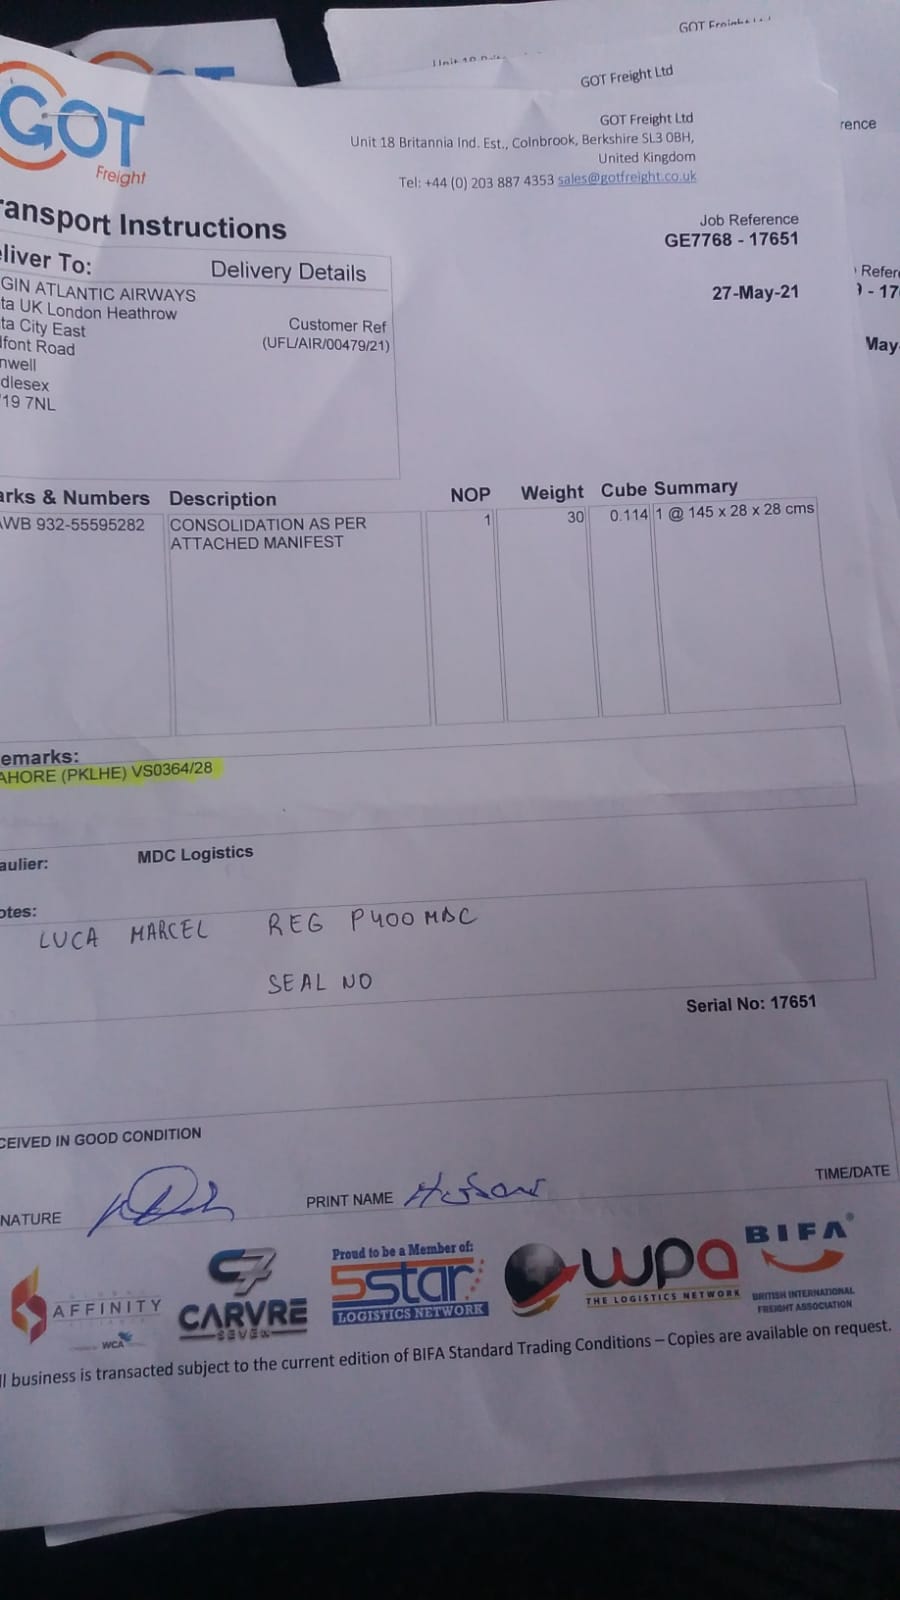 GOT Freight Ltd
GOT Freight Ltd
rence
GOT
Freight
GOT Freight Ltd
Unit 18 Britannia Ind. Est., Colnbrook, Berkshire SL3 0BH,
United Kingdom
Tel: +44 (0) 203 887 4353 sales@gotfreight.co.uk
ansport Instructions
Job Reference
GE7768 - 17651
27-May-21
Refer
9 - 17
May-
liver To:
Delivery Details
GIN ATLANTIC AIRWAYS
ta UK London Heathrow
ta City East
lfont Road
nwell
dlesex
19 7NL
Customer Ref
(UFL/AIR/00479/21)
arks & Numbers Description NOP Weight Cube Summary
AWB 932-55595282 CONSOLIDATION AS PER 1 30 0.114 1 @ 145 x 28 x 28 cms
ATTACHED MANIFEST
emarks:
AHORE (PKLHE) VS0364/28
aulier: MDC Logistics
otes:
LUCA MARCEL REG P400MDC
SEAL NO
Serial No: 17651
CEIVED IN GOOD CONDITION
NATURE
PRINT NAME
TIME/DATE
AFFINITY
WCA
C7
CARVRE
SEVEN
Proud to be a Member of:
5star
LOGISTICS NETWORK
wpa
THE LOGISTICS NETWORK
BIFA
BRITISH INTERNATIONAL
FREIGHT ASSOCIATION
ll business is transacted subject to the current edition of BIFA Standard Trading Conditions – Copies are available on request.